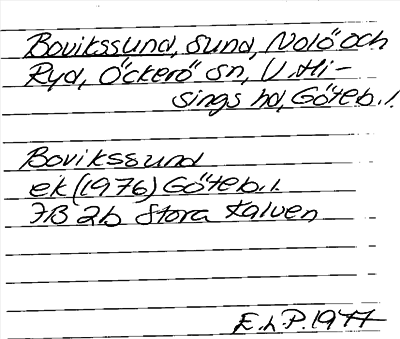 Bovikssund, sund, Nolö och
Ryd, Öckerö sn, V. Hi-
sings hd, Göteb. l.
Bovikssund
ek (1976) Göteb. l.
7B 2b Stora Kalven
E. L-P. 1977